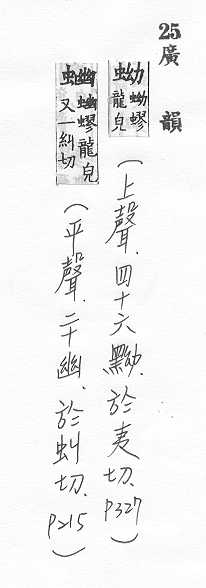 25
廣韻
蚴 蚴蟉龍皃
(上聲.四十六黝.於夷切.P327)
蚴 蟉龍皃又一糾切
(平聲.二十幽、於虯切.P215)